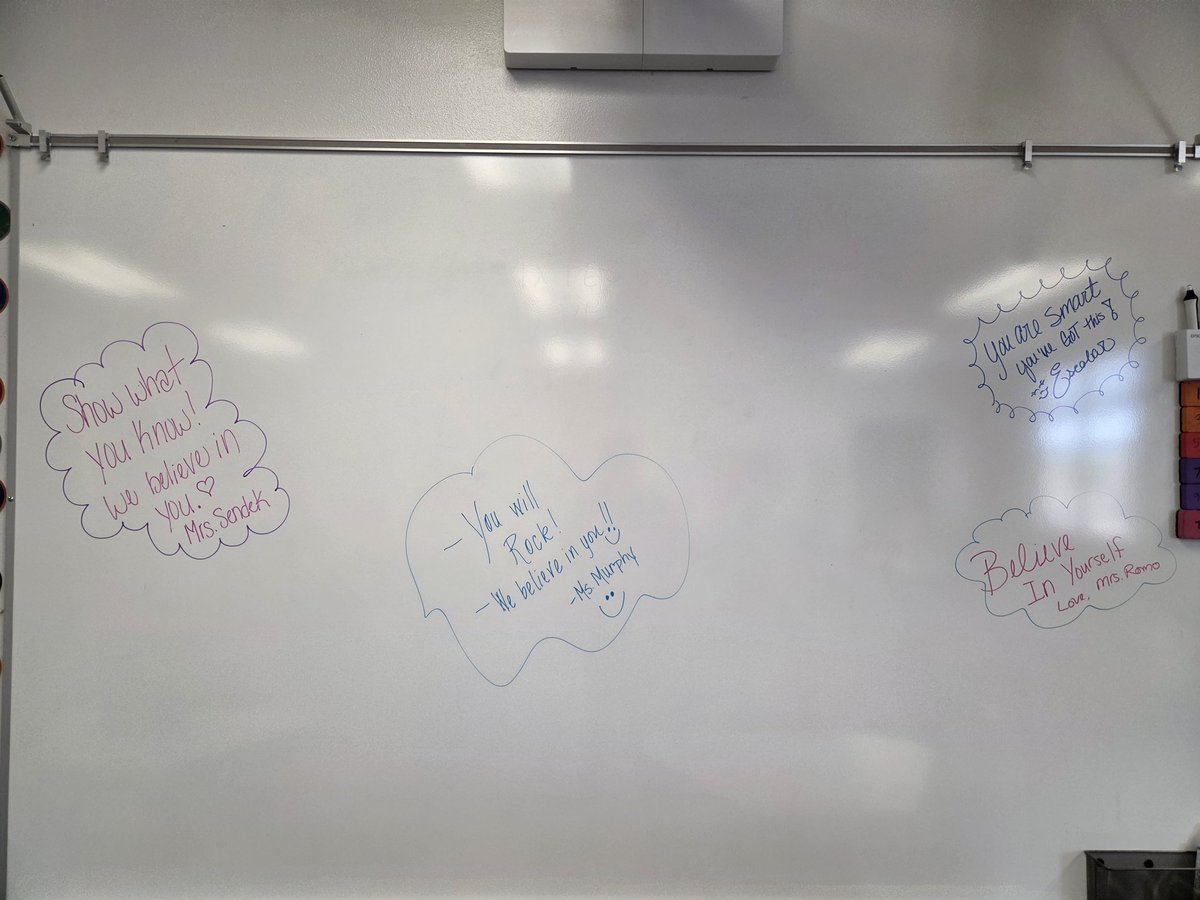 Show what
you know!
we believe in
you. ♡
Mrs. Sendek
- You will
Rock!
- We believe in you!!
- Ms. Murphy
You are Smart
you've GOT this!
Escobar
Believe
In Yourself
Love, Mrs. Romo